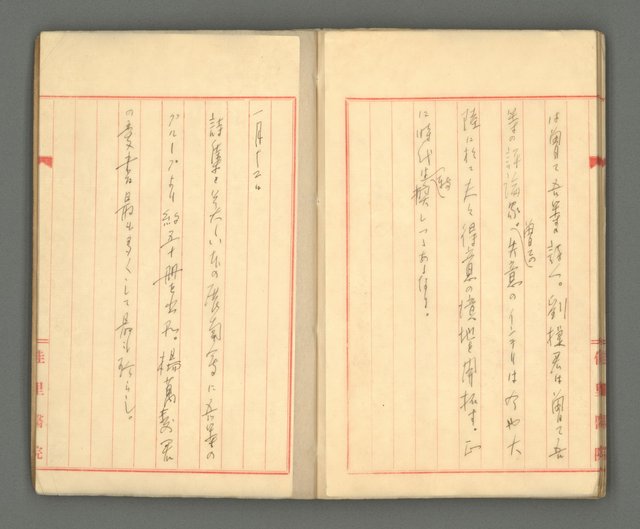 は曽て吾等の詩人。劉捷君は曽て吾
等の評論家。曽ての失意のインテリは今や大
陸に於て夫々得意の境地を開拓す。正
に時代は転換しつつあるなり。
佳里醫院
一月十二日
詩集と美しい本の展覧會に吾等の
グループより約五十冊を出す。楊萬壽君
の蔵書最も多くして最も珍らし。
佳里醫院